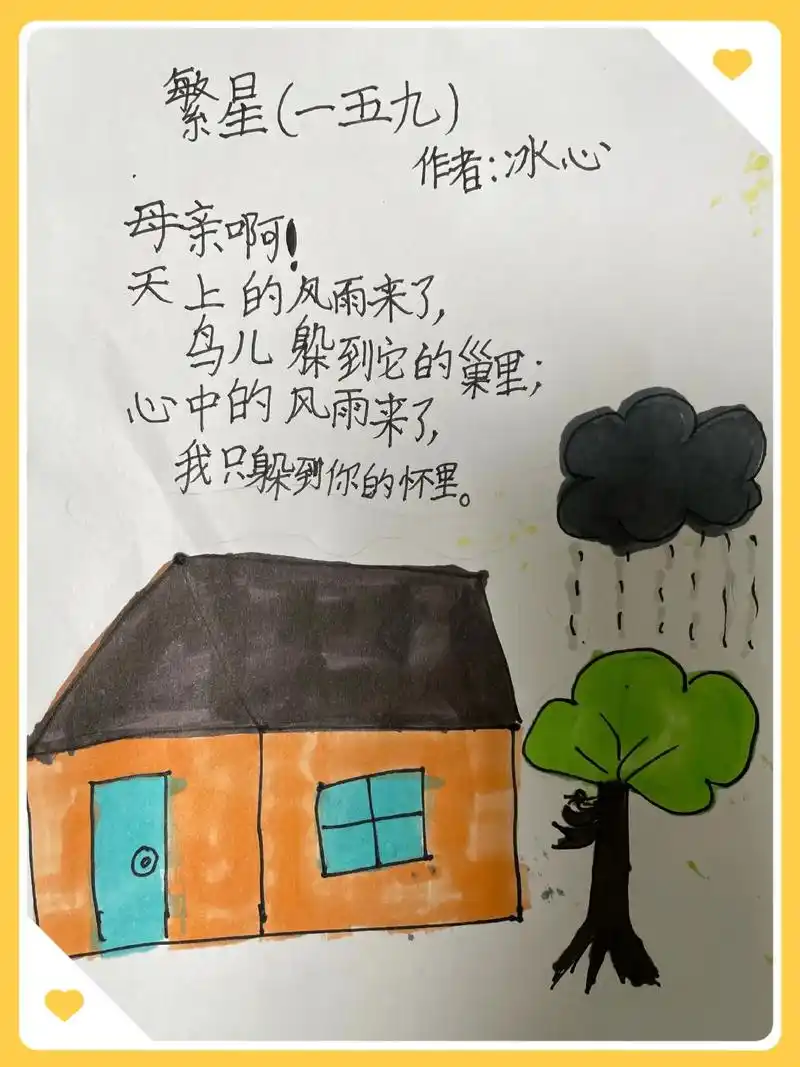 繁星(一五九)
作者:冰心
母亲啊!
天上的风雨来了,
鸟儿躲到它的巢里;
心中的风雨来了,
我只躲到你的怀里。